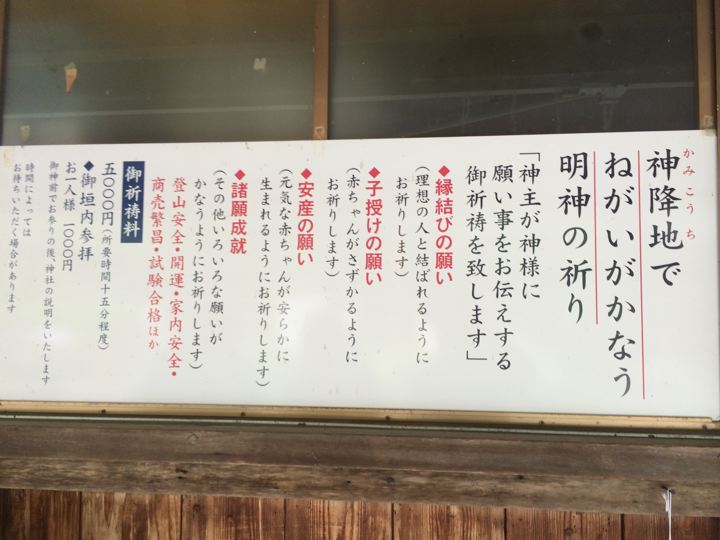 神降地で
かみこうち
ねがいがかなう
明神の祈り
「神主が神様に
願い事をお伝えする
御祈祷を致します」
◆縁結びの願い
(理想の人と結ばれるように
お祈りします)
◆子授けの願い
(赤ちゃんがさずかるように
お祈りします)
◆安産の願い
(元気な赤ちゃんが安らかに
生まれるようにお祈りします)
◆諸願成就
(その他いろいろな願いが
かなうようにお祈りします)
登山安全・開運・家内安全・
商売繁昌・試験合格ほか
御祈祷料
五〇〇〇円(所要時間十五分程度)
◆御垣内参拝
お一人様 一〇〇〇円
御神前でお参りの後、神社の説明をいたします
時間によっては
お待ちいただく場合があります